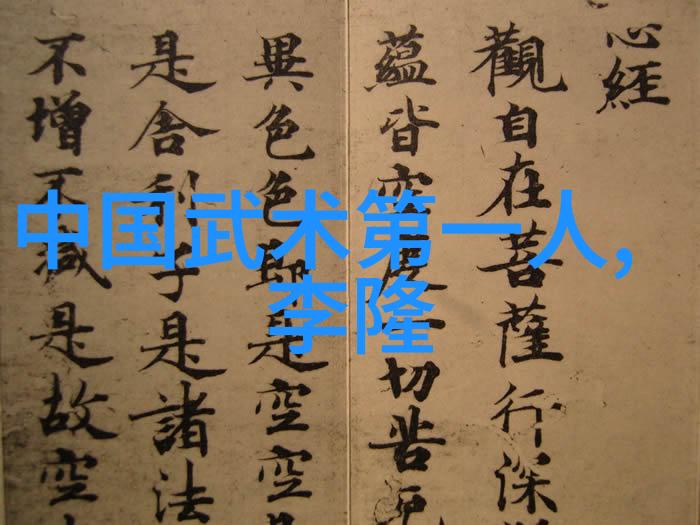 中国武术第一人,
李隆
心經
觀自在菩薩行深
蘊皆空度一切苦厄
異色色即是空空是
是舍利子是諸法
不增不減是故空